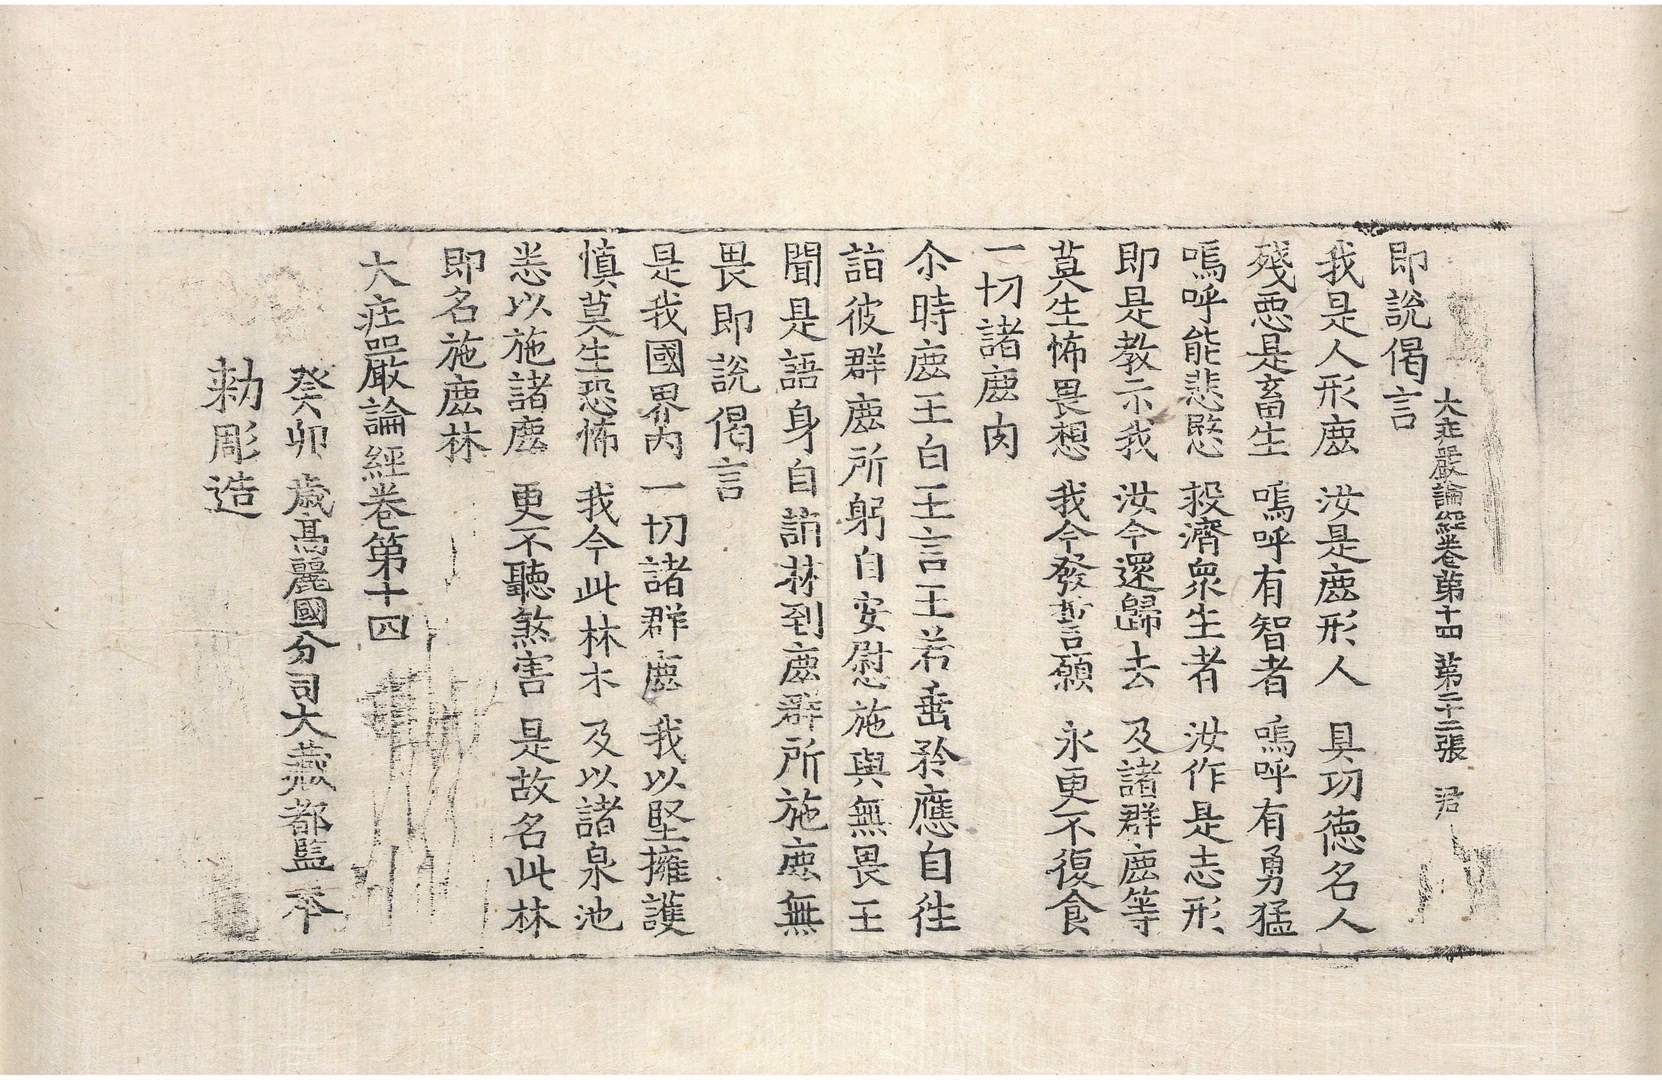 大莊嚴論經卷第十四 第二十二張 君
即說偈言
我是人形鹿 汝是鹿形人 具功德名人
殘惡是畜生 嗚呼有智者 嗚呼有勇猛
嗚呼能悲愍 救濟衆生者 汝作是志形
即是教示我 汝今還歸去 及諸群鹿等
莫生怖畏想 我今發誓願 永更不復食
一切諸鹿肉
尒時鹿王白王言王若垂矜應自往
詣彼群鹿所躬自安慰施與無畏王
聞是語身自詣林到鹿群所施鹿無
畏即說偈言
是我國界內 一切諸群鹿 我以堅擁護
慎莫生恐怖 我今此林木 及以諸泉池
悉以施諸鹿 更不聽煞害 是故名此林
即名施鹿林
大莊嚴論經卷第十四
癸卯歲高麗國分司大藏都監奉
勅彫造